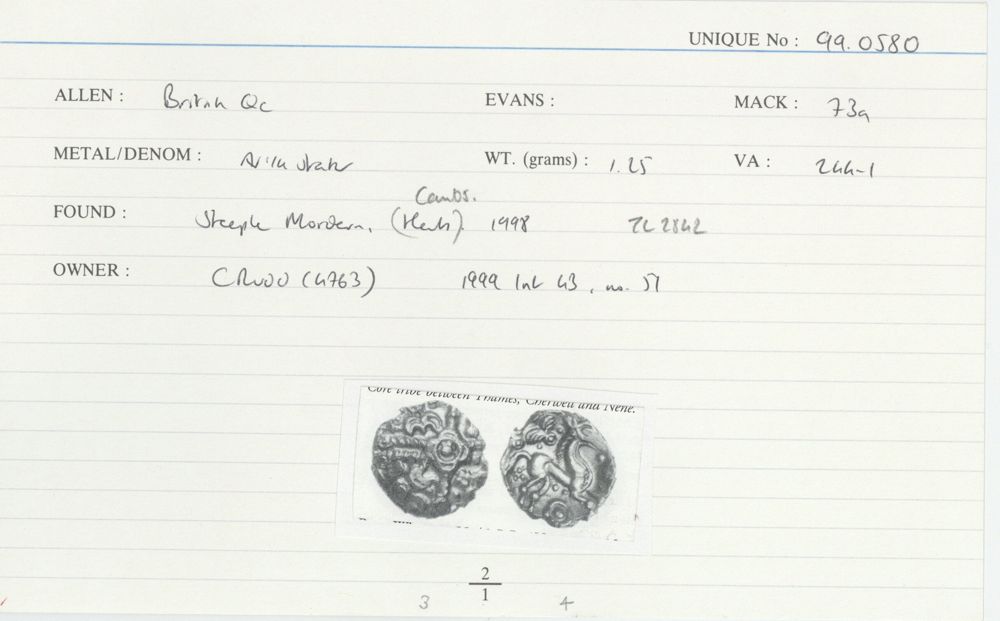 UNIQUE No : 99.0580
ALLEN : British Qc EVANS : MACK : 73a
METAL/DENOM : WT. (grams) : 1.25 VA : 244-1
Cambs.
FOUND : Steeple Mordern, (Herts). 1998 TL 2842
OWNER : CR (4763) 1999 List 43, no. 51
Core tribe between Thames, Cherwell and Nene.
2
1
3 4